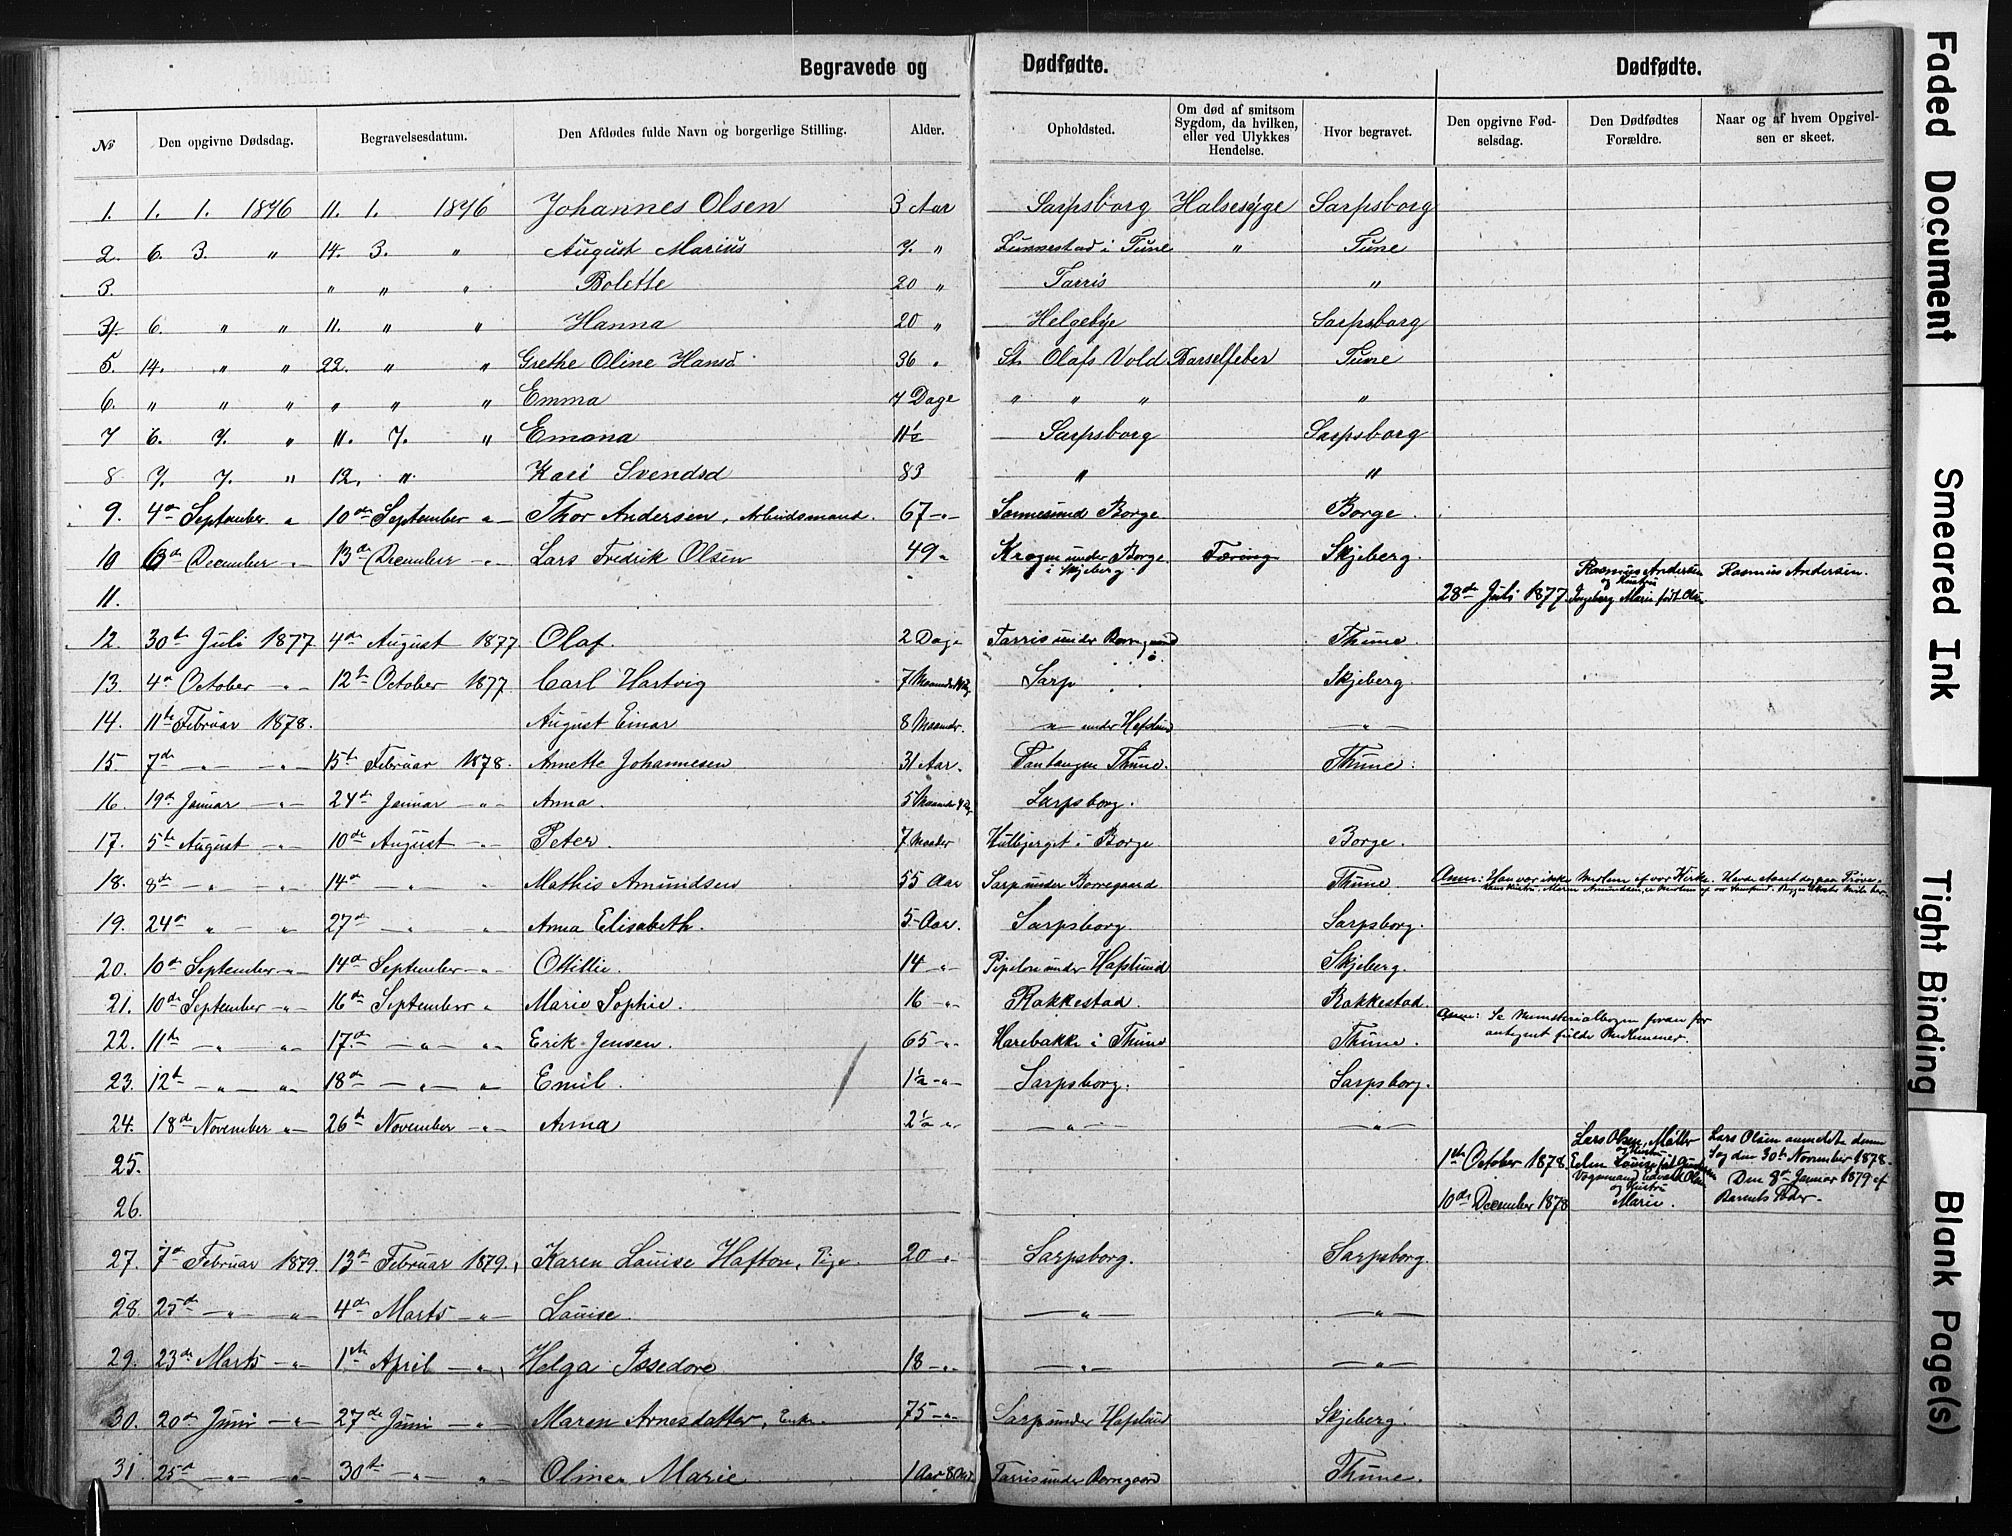 Begravede og Dødfødte. Dødfødte.
№ Den opgivne Dødsdag. Begravelsesdatum. Den Afdødes fulde Navn og borgerlige Stilling. Alder. Opholdsted. Om død af smitsom Sygdom, da hvilken, eller ved Ulykkes Hendelse. Hvor begravet. Den opgivne Fødselsdag. Den Dødfødtes Forældre. Naar og af hvem Opgivelsen er skeet.
1. 1. 1. 1876 11. 1. 1876 Johannes Olsen 3 Aar Sarpsborg Halsesyge Sarpsborg
2. 6. 3. " 14. 3. " August Marius 7. " Lunnestad i Tune " Tune
3. " " " Bolette 20 " Tarris "
4. 6. " " 11. " " Hanna 20 " Helgebye Sarpsborg
5. 14. " " 22. " " Grethe Oline Hansd 36 " St. Olafs Vold Barselfeber Tune
6. " " " " " " Emma 7 Dage " " " "
7 6. 7. " 11. 7. " Emana 11½ Sarpsborg Sarpsborg
8 7. 7. " 12. " Kari Svendsd 83 " "
9. 4de September " 10de September -"- Thor Andersen, Arbeidsmand. 67 -"- Sannesund Borge Borge.
10 6de December -"- 13de December -"- Lars Fredrik Olsen 49 " Krogen under Borge i Skjeberg. Tæring Skjeberg.
11. 28de Juli 1877. Rasmus Andersen og Hustru Ingeborg Marie født Olsen Rasmus Andersen.
12. 30te Juli 1877 4de August 1877. Olaf. 2 Dage Tarris under Borregaard Thune.
13. 4de October -"- 12te October 1877 Carl Hartvig 7 Maaneder Sarp Skjeberg.
14. 11te Februar 1878. August Einar 8 Maaneder. -"- under Hafslund -"-
15. 7de -"- -"- 15de Februar 1878. Annette Johannesen 31 Aar. Thune. Thune.
16. 19de Januar -"- 24de Januar -"- Anna. 5 Maaneder Sarpsborg.
17. 5te August -"- 10de August -"- Peter. 7 Maader i Borge Borge.
18. 8de -"- -"- 14de -"- " Mathis Amundsen 55 Aar Sarp under Borregaard Thune. Anm: Han var ikke Medlem af vor Kirke.
19. 24de " - " 27de -"- -"- Anna Elisabeth. 5 Aar. Sarpsborg Sarpsborg.
20. 10de September -"- 14de September -"- Ottillie. 14 -"- Pipeløse under Hafslund Skjeberg.
21. 10de September -"- 16de September " Marie Sophie. 16 -"- Rakkestad. Rakkestad.
Anm: Se Ministerialbogen foran for antegnet fulde
22. 11te -"- -"- 17de -"- -"- Erik Jensen. 65 -"- Harebakke i Thune Thune.
23. 12te -"- -"- 18de -"- " Emil. 1½ -"- Sarpsborg. Sarpsborg.
24. 18de November -"- 26de November -"- Anna 2½ " -"- -"-
25. 1ste October 1878 Lars Olsen, Møller og Hustru Louise Lars Olsen anmeldte denne Sag den 30te November 1878.
26. 10de December 1878 Vognmand Edvard Olsen og Hustru Marie. Den 8de Januar 1879 af Barnets Fader.
27. 7de Februar 1879. 13de Februar 1879. Karen Louise Hafton, Pige. 20 -"- Sarpsborg. Sarpsborg.
28. 25de -"- -"- 4de Marts -"- Louise. -"- -"-
29. 23de Marts -"- 1ste April -"- Helga Issedore 18 -"- -"- -"-
30. 20de Juni -"- 27de Juni -"- Maren Arnesdatter, Enke. 75 -"- Sarp under Hafslund Skjeberg.
31. 25de -"- -"- 30te -"- " Oline Marie 1 Aar Tarris under Borregaard Thune.
Faded Document
Smeared Ink
Tight Binding
Blank Page(s)